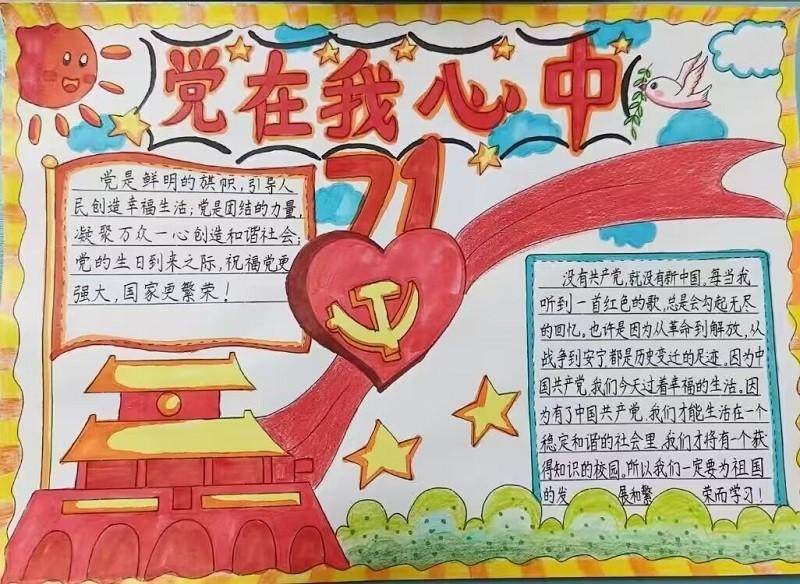 党在我心中
71
党是鲜明的旗帜,引导人
民创造幸福生活;党是团结的力量,
凝聚万众一心创造和谐社会;
党的生日到来之际,祝福党更
强大,国家更繁荣!
没有共产党,就没有新中国。每当我
听到一首红色的歌,总是会勾起无尽
的回忆。也许是因为从革命到解放,从
战争到安宁,都是历史变迁的足迹。因为中
国共产党,我们今天过着幸福的生活。因
为有了中国共产党,我们才能生活在一个
稳定和谐的社会里,我们才将有一个获
得知识的校园。所以我们一定要为祖国
的发展和繁荣而学习!